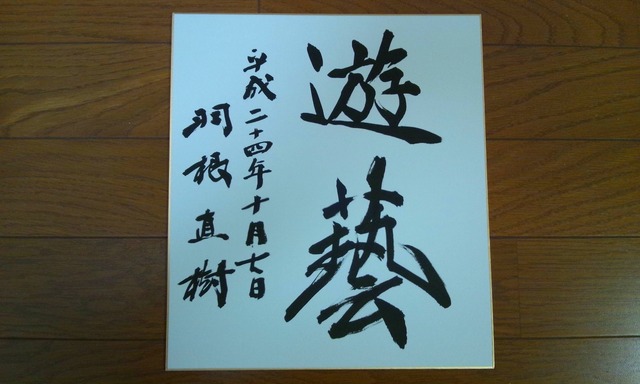 遊藝
平成二十四年十月七日
羽根直樹